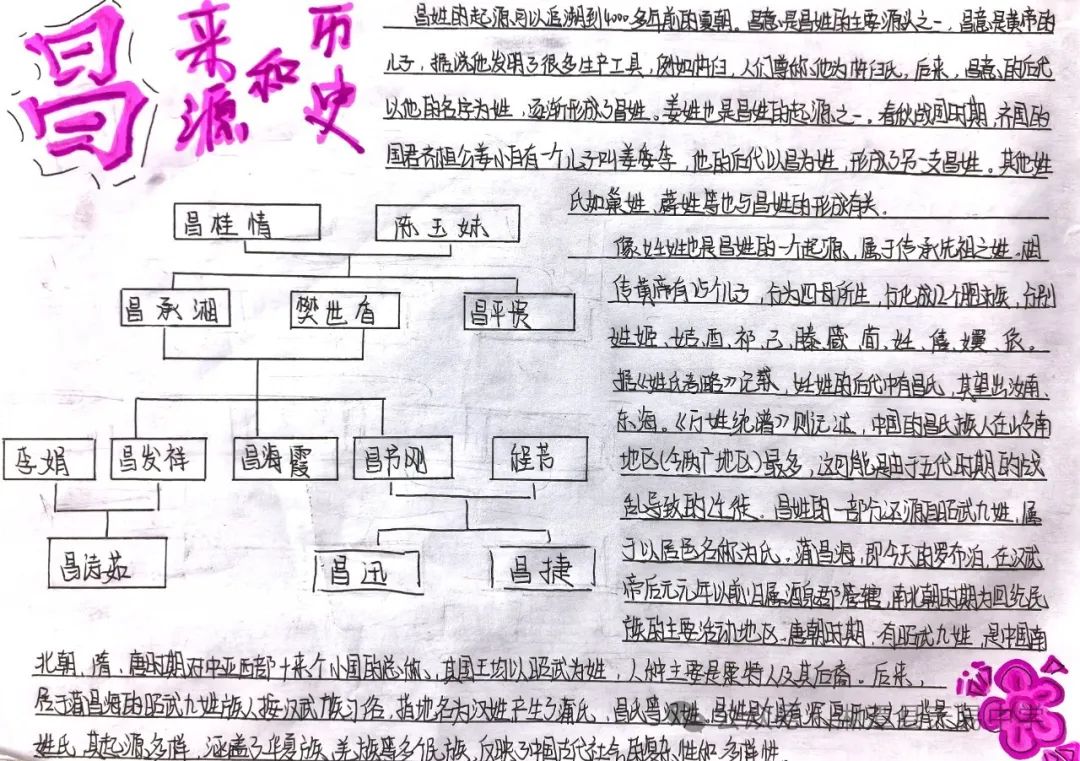 昌
来源和历史
昌姓的起源可以追溯到4000多年前的夏朝。昌意是昌姓的主要源头之一，昌意是黄帝的
儿子，据说他发明了很多生产工具，例如杵臼，人们尊称他为杵臼氏，后来，昌意的后代
以他的名字为姓，逐渐形成了昌姓。姜姓也是昌姓的起源之一。春秋战国时期，齐国的
国君齐桓公姜小白有一个儿子叫姜，他的后代以昌为姓，形成了另一支昌姓。其他姓
氏如姓、姓等也与昌姓的形成有关。
像妊姓也是昌姓的一个起源，属于传承先祖之姓。相
传黄帝有25个儿子，分为四母所生，分化成12个胞族，分别
姓姬、姞、酉、祁、己、滕、箴、荀、妊、僖、嬛、依。
据《姓氏考略》记载，妊姓的后代中有昌氏，其望出汝南、
东海。《万姓统谱》则记述，中国的昌氏族人在岭南
地区（今两广地区）最多，这可能是由于五代时期的战
乱导致的迁徙。昌姓的一部分还源自昭武九姓，属
于以居邑名称为氏。蒲昌海，即今天的罗布泊，在汉武
帝后元元年以前归属酒泉郡管辖，南北朝时期为回纥民
族的主要活动地区。唐朝时期，有昭武九姓，是中国南
北朝、隋、唐时期对中亚西部十来个小国的总称，其国王均以昭武为姓，人种主要是粟特人及其后裔。后来，
居于蒲昌海的昭武九姓族人按汉武族习俗，指地名为汉姓产生了蒲氏，昌氏两汉姓。昌姓是个具有深厚历史文化背景的
姓氏，其起源多样，涵盖了华夏族、羌族等多个民族，反映了中国古代社会的复杂性和多样性。
昌桂情
陈玉妹
昌承湘
樊世香
昌平贵
李娟
昌发祥
昌海霞
昌书刚
程芳
昌诗茹
昌迅
昌捷